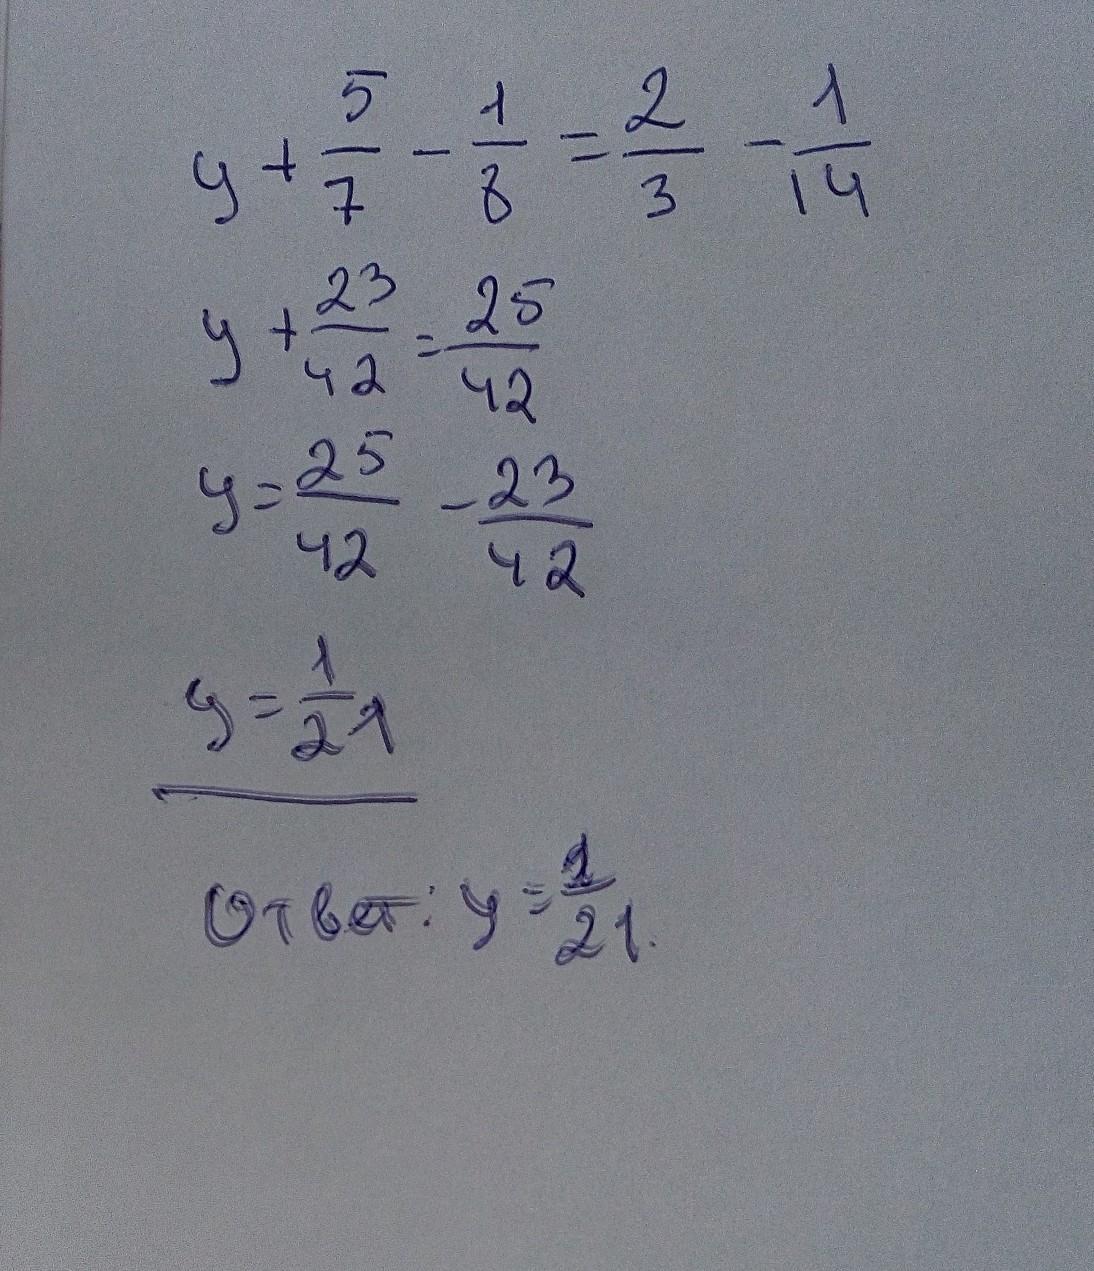 y + 5/7 - 1/8 = 2/3 - 1/14
y + 23/42 = 25/42
y = 25/42 - 23/42
y = 1/21
Ответ: y = 1/21.